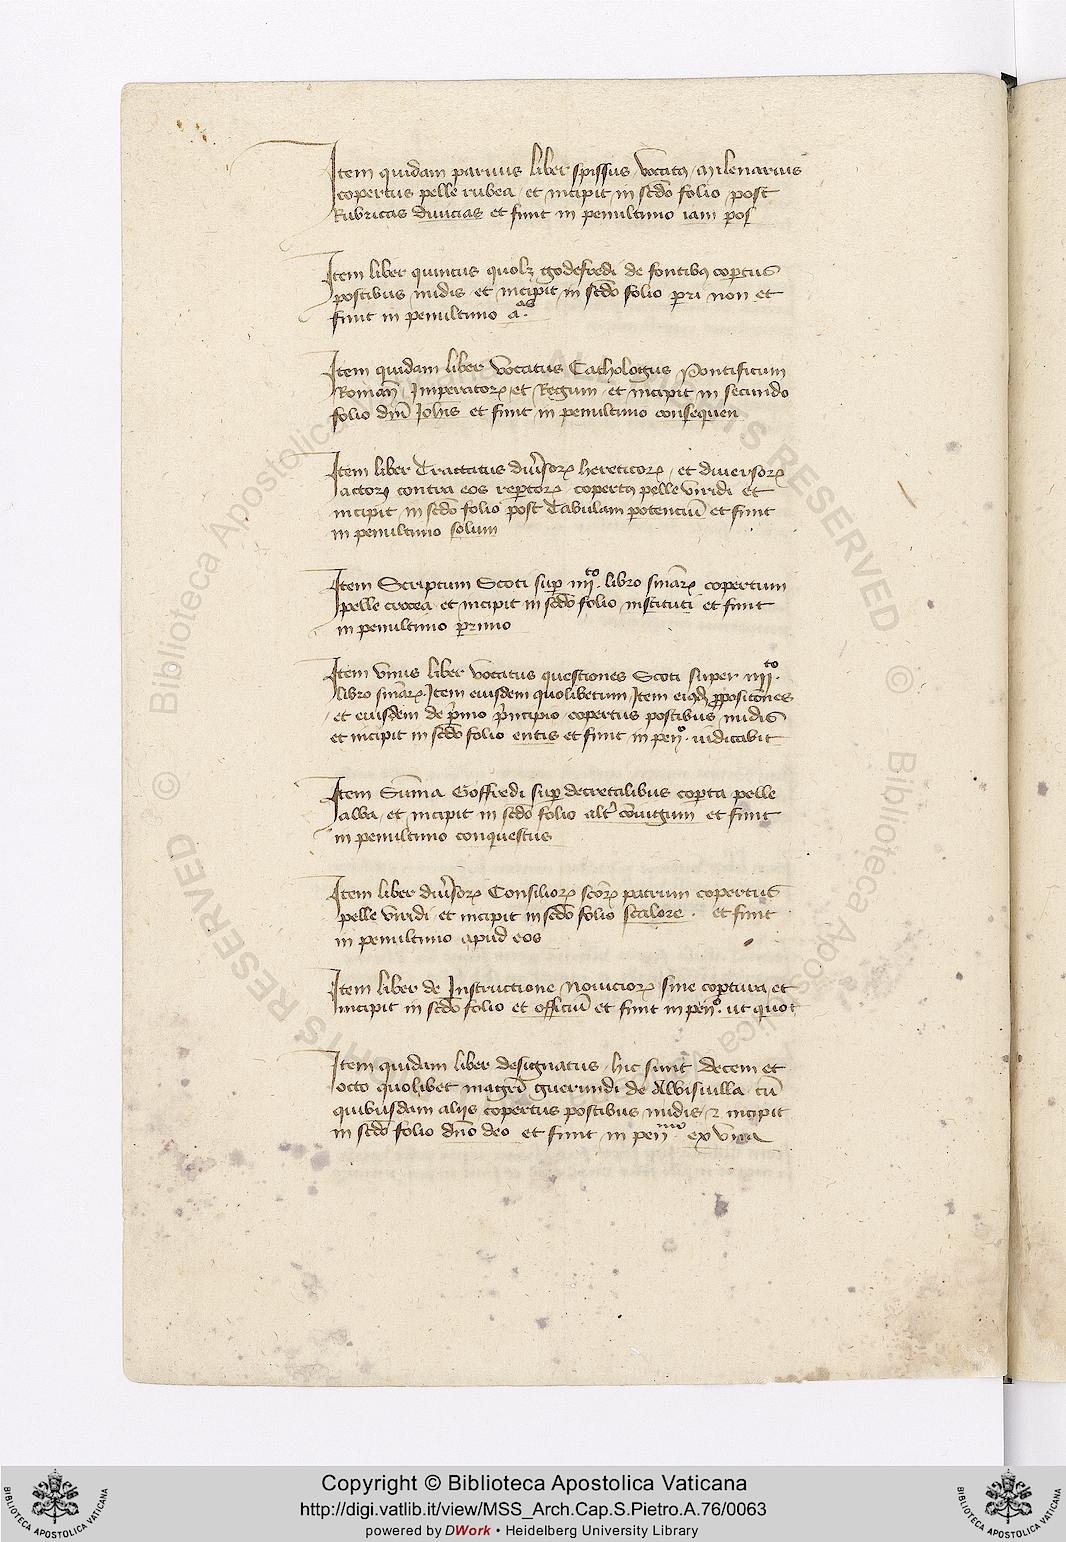 Item quidam paruus liber spissus vocatꝰ milenarius
copertus pelle rubea et incipit in scdo folio post
Rubricas diuicias et finit in penultimo iam pos
Item liber quintus quolꝫ godefredi de fontibꝰ coptus
postibus nudis et incipit in scdo folio pri non et
finit in penultimo
Item quidam liber vocatus Cathologus Pontificum
Roman Imperatoꝝ et Regum et incipit in secundo
folio dni Johis et finit in penultimo consequen
Item liber Tractatus diusoꝝ hereticoꝝ et diuersoꝝ
actoꝝ contra eos reptoꝝ copertꝰ pelle viridi et
incipit in scdo folio post tabulam potenciu et finit
in penultimo solum
Item Scriptum Scoti sup iiii.to libro sniaꝝ copertum
pelle crocea et incipit in scdo folio instituti et finit
in penultimo primo
Item vnus liber vocatus questiones Scoti super iiii.to
libro sniaꝝ Item eiusdem quolibetum Item eiqd ppositiones
et eiusdem de pmo pncipio copertus postibus nudis
et incipit in scdo folio entis et finit in peno. iudicabit
Item Suma Goffredi sup decretalibus copta pelle
alba et incipit in scdo folio alt coniugium et finit
in penultimo conquestus
Item liber diusoꝝ Consilioꝝ scoꝝ patrum copertus
pelle viridi et incipit in scdo folio scalore. et finit
in penultimo apud eos
Item liber de Instructione Nouicioꝝ sine coptura et
incipit in scdo folio et officiu et finit in peno. ut quot
Item quidam liber designatus hic sunt decem et
octo quolibet magri guerundi de Albisuilla cu
quibusdam aliis copertus postibus nudis ⁊ incipit
in scdo folio dno deo et finit in penimo ex vna
© Biblioteca Apostolica Vaticana ALL RIGHTS RESERVED
© Biblioteca Apostolica Vaticana ALL RIGHTS RESERVED
Copyright © Biblioteca Apostolica Vaticana
http://digi.vatlib.it/view/MSS_Arch.Cap.S.Pietro.A.76/0063
powered by DWork • Heidelberg University Library
BIBLIOTECA APOSTOLICA VATICANA
BIBLIOTECA APOSTOLICA VATICANA